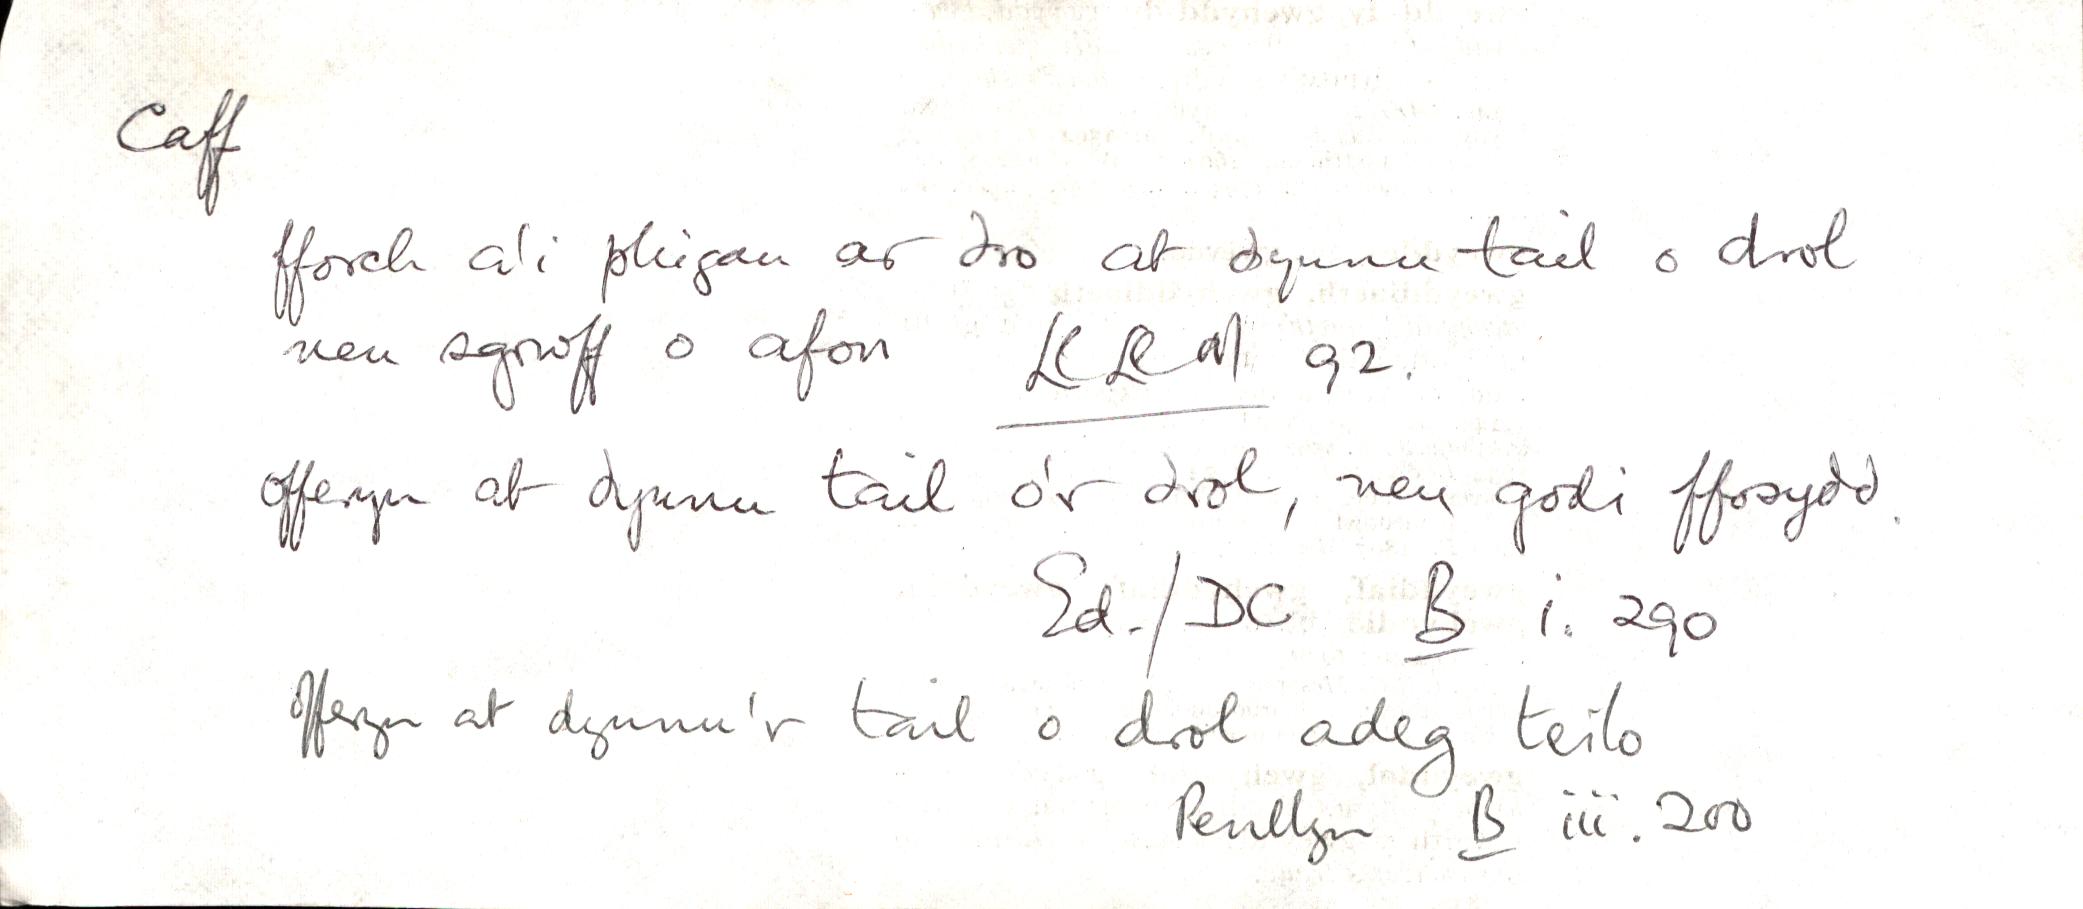 Caff
fforch a'i phigau ar dro at dynnu tail o drol
neu sgrwff o afon LLLlM 92.
offeryn at dynnu tail o'r drol, neu godi ffosydd.
Ed./DC B i. 290
Offeryn at dynnu'r tail o drol adeg teilo
Penllyn B iii. 200